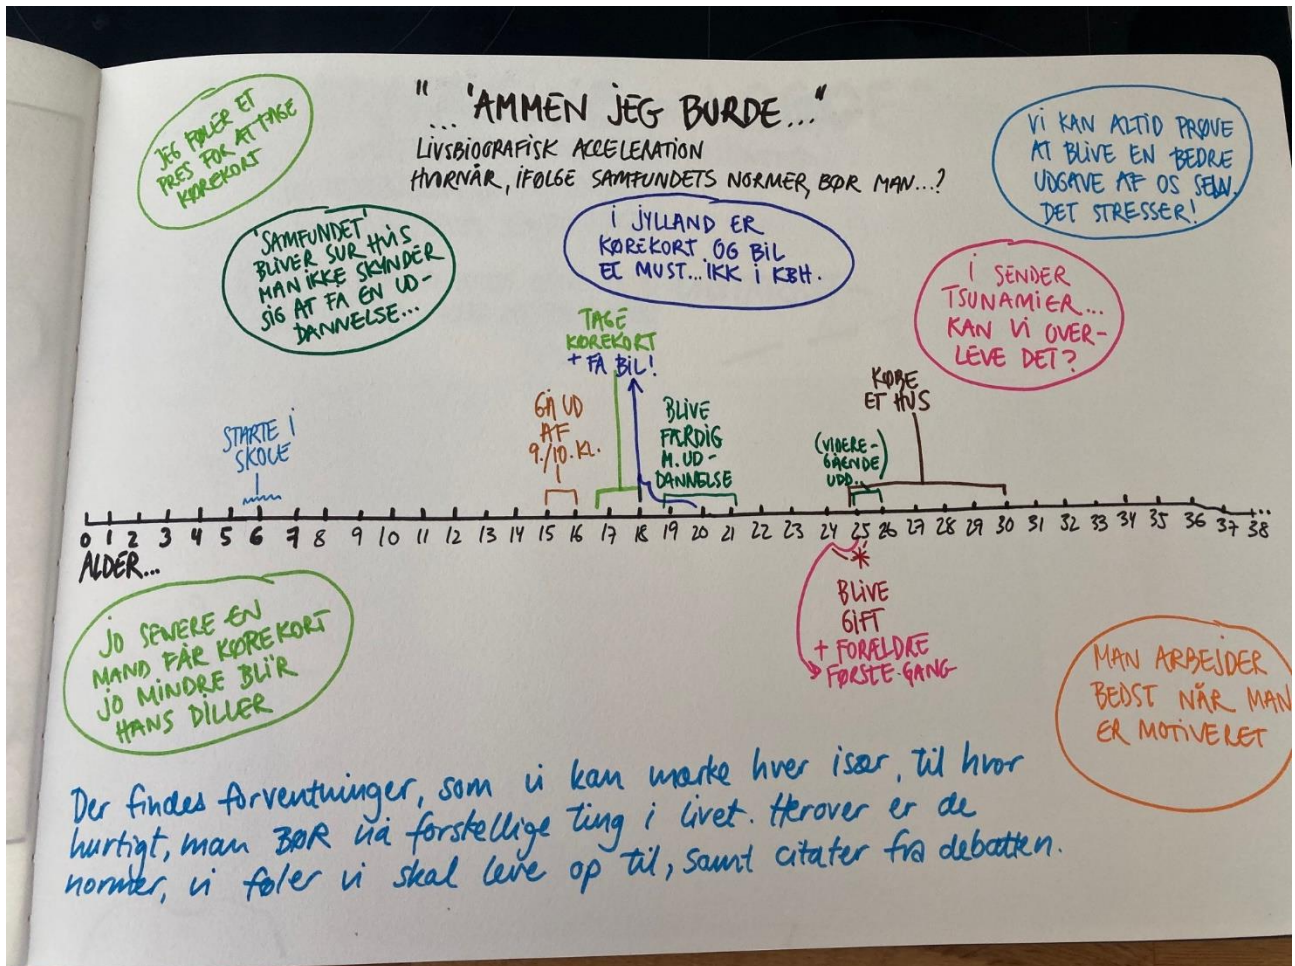 "...'AMMEN JEG BURDE..."
LIVSBIOGRAFISK ACCELERATION
HVORNÅR, IFØLGE SAMFUNDETS NORMER, BØR MAN...?
JEG FØLER ET
PRES FOR AT TAGE
KØREKORT
'SAMFUNDET'
BLIVER SUR HVIS
MAN IKKE SKYNDER
SIG AT FÅ EN UD-
DANNELSE...
I JYLLAND ER
KØREKORT OG BIL
ET MUST... IKK I KBH.
VI KAN ALTID PRØVE
AT BLIVE EN BEDRE
UDGAVE AF OS SELV.
DET STRESSER!
I SENDER
TSUNAMIER...
KAN VI OVER-
LEVE DET?
STARTE I
SKOLE
GÅ UD
AF
9./10. KL.
TAGE
KØREKORT
+ FÅ BIL!
BLIVE
FÆRDIG
M. UD-
DANNELSE
(VIDERE-
GÅENDE)
UDD..
KØBE
ET HUS
0 1 2 3 4 5 6 7 8 9 10 11 12 13 14 15 16 17 18 19 20 21 22 23 24 25 26 27 28 29 30 31 32 33 34 35 36 37 38...
ALDER...
BLIVE
GIFT
+ FORÆLDRE
FØRSTE-GANG
JO SENERE EN
MAND FÅR KØREKORT
JO MINDRE BLI'R
HANS DILLER
MAN ARBEJDER
BEDST NÅR MAN
ER MOTIVERET
Der findes forventninger, som vi kan mærke hver især, til hvor
hurtigt, man BØR nå forskellige ting i livet. Herover er de
normer, vi føler vi skal leve op til, samt citater fra debatten.